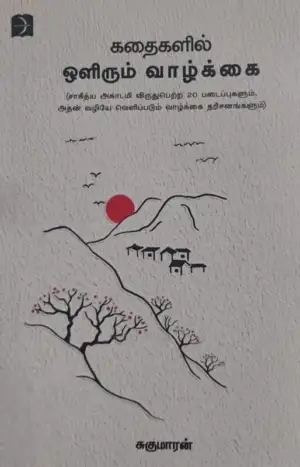 கதைகளில்
ஒளிரும் வாழ்க்கை
(சாகித்ய அகாடமி விருதுபெற்ற 20 படைப்புகளும்,
அதன் வழியே வெளிப்படும் வாழ்க்கை தரிசனங்களும்)
சுகுமாரன்